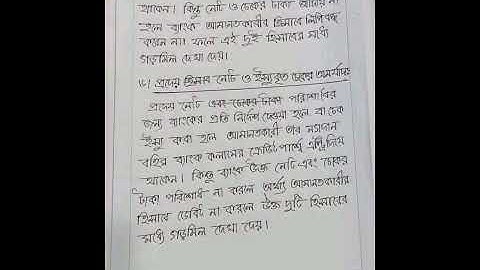 থাকেন। কিন্তু নোট ও চেকের টাকা আদায় না
হলে ব্যাংক আমানতকারীর হিসাবে লিপিবদ্ধ
করেন না। ফলে এই দুই হিসাবের মধ্যে
গড়মিল দেখা দেয়।
প্রদেয় হিসাব নোট ও ইস্যুকৃত চেকের অমর্যাদাঃ
প্রদেয় নোট এবং চেকের টাকা পরিশোধের
জন্য ব্যাংকের প্রতি নির্দেশ দেওয়া হলে বা চেক
ইস্যু করা হলে আমানতকারী তার নগদান
বহির ব্যাংক কলামের ক্রেডিট পার্শ্বে এন্ট্রি দিয়ে
থাকেন। কিন্তু ব্যাংক উক্ত নোট এবং চেকের
টাকা পরিশোধ না করলে অর্থাৎ আমানতকারীর
হিসাবে ডেবিট না করলে উক্ত দুটি হিসাবের
মধ্যে গড়মিল দেখা দেয়।